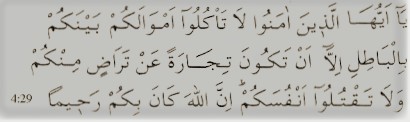 يَٓا اَيُّهَا الَّذ۪ينَ اٰمَنُوا لَا تَأْكُلُٓوا اَمْوَالَكُمْ بَيْنَكُمْ
بِالْبَاطِلِ اِلَّٓا اَنْ تَكُونَ تِجَارَةً عَنْ تَرَاضٍ مِنْكُمْ
وَلَا تَقْتُلُٓوا اَنْفُسَكُمْ اِنَّ اللّٰهَ كَانَ بِكُمْ رَح۪يمًا 4:29